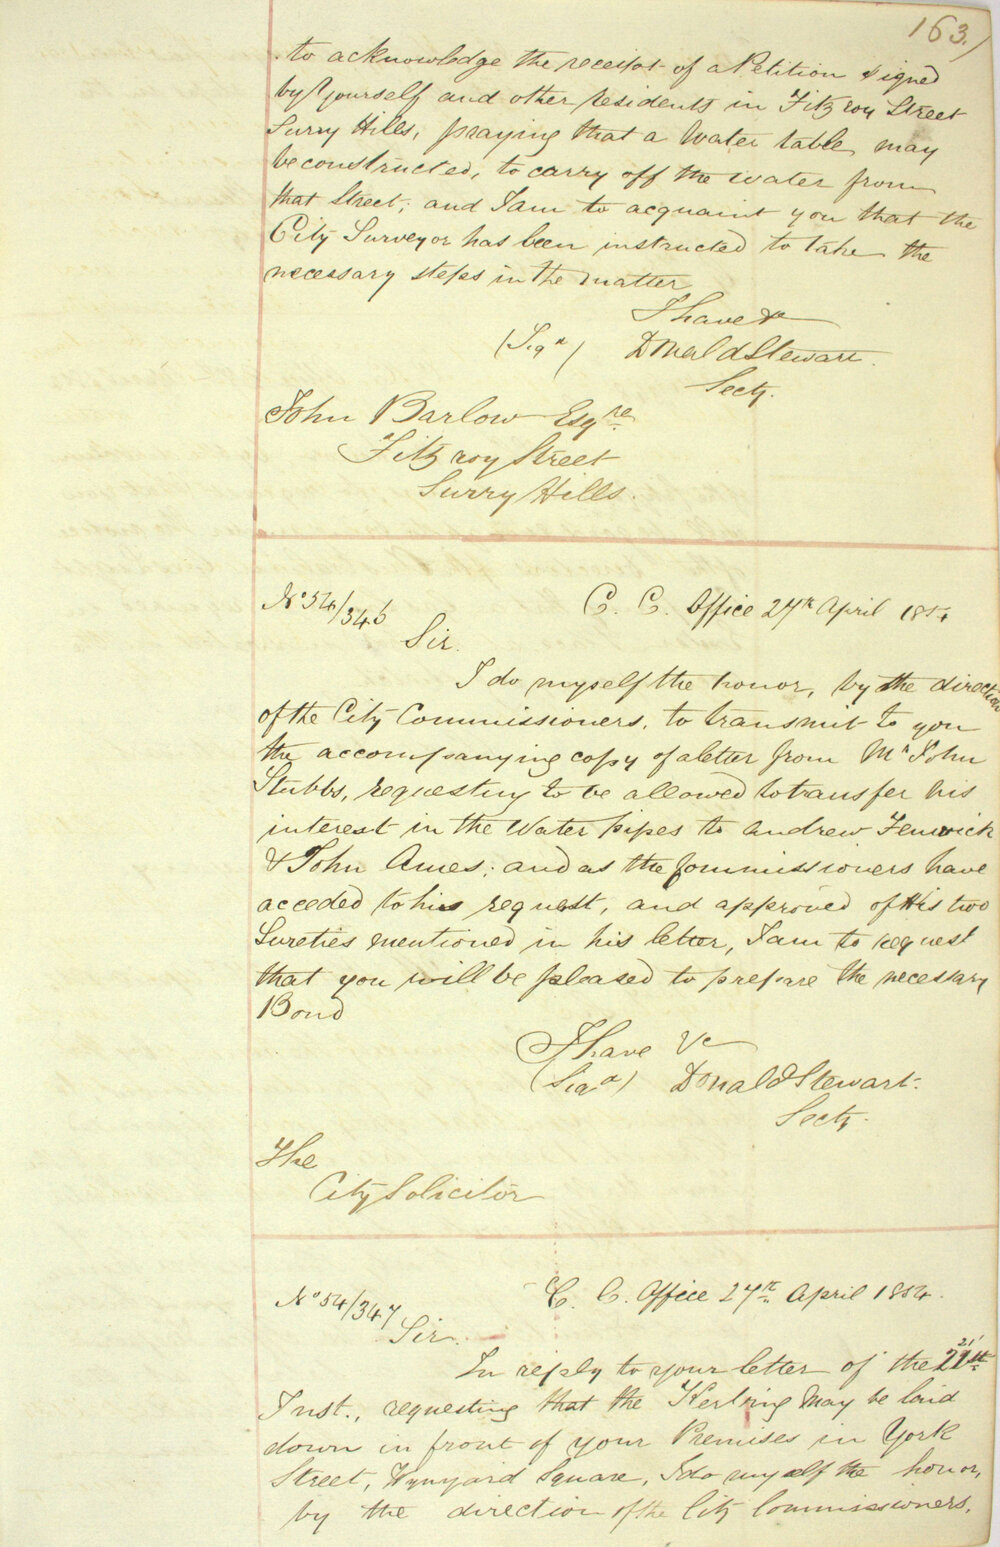 163.
to acknowledge the receipt of a Petition signed
by Yourself and other residents in Fitzroy Street
Surry Hills, praying that a Water table may
be constructed, to carry off the water from
that Street; and I am to acquaint you that the
City Surveyor has been instructed to take the
necessary steps in the matter
I have &c
(Sigd) Donald Stewart.
Secty.
John Barlow Esqre.
Fitzroy Street
Surry Hills.
No 54/346 C. C. Office 27th April 1854
Sir.
I do myself the honor, by the direction
of the City Commissioners, to transmit to you
the accompanying copy of a letter from Mr John
Stubbs, requesting to be allowed to transfer his
interest in the Water pipes to Andrew Fenwick
& John Ames; and as the Commissioners have
acceded to his request, and approved of His two
Sureties mentioned in his letter, I am to request
that you will be pleased to prepare the necessary
Bond
I have &c
(Sigd) Donald Stewart.
Secty.
The
City Solicitor
No 54/347 C. C. Office 27th April 1854.
Sir.
In reply to your letter of the 21st
Inst., requesting that the Kerbing May be laid
down in front of your Premises in York
Street, Wynyard Square, I do myself the honor,
by the direction of the City Commissioners,